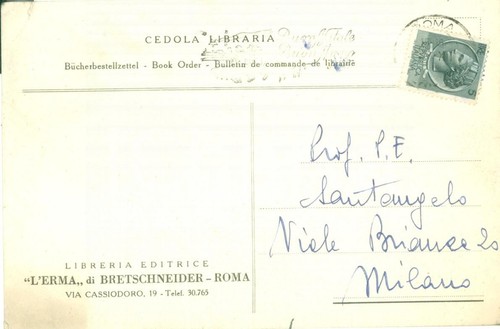 CEDOLA LIBRARIA
Bücherbestellzettel - Book Order - Bulletin de commande de librairie
ROMA
5
Prof. P. E.
Santangelo
Viale Brianza 20
Milano
LIBRERIA EDITRICE
"L'ERMA„ di BRETSCHNEIDER - ROMA
VIA CASSIODORO, 19 - Telef. 30.765